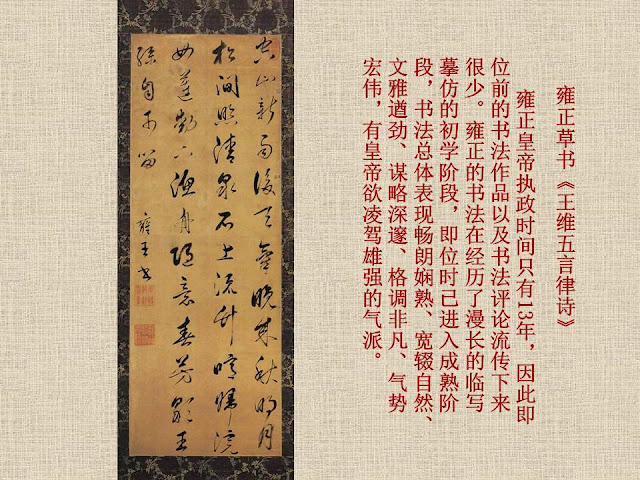 雍正草书《王维五言律诗》
雍正皇帝执政时间只有13年，因此即
位前的书法作品以及书法评论流传下来
很少。雍正的书法在经历了漫长的临写
摹仿的初学阶段，即位时己进入成熟阶
段，书法总体表现畅朗娴熟、宽辍自然、
文雅遒劲、谋略深邃、格调非凡、气势
宏伟，有皇帝欲凌驾雄强的气派。
空山新雨後天氣晚來秋明月
松間照清泉石上流竹喧歸浣
女蓮動下漁舟隨意春芳歇王
孫自可留
雍王書